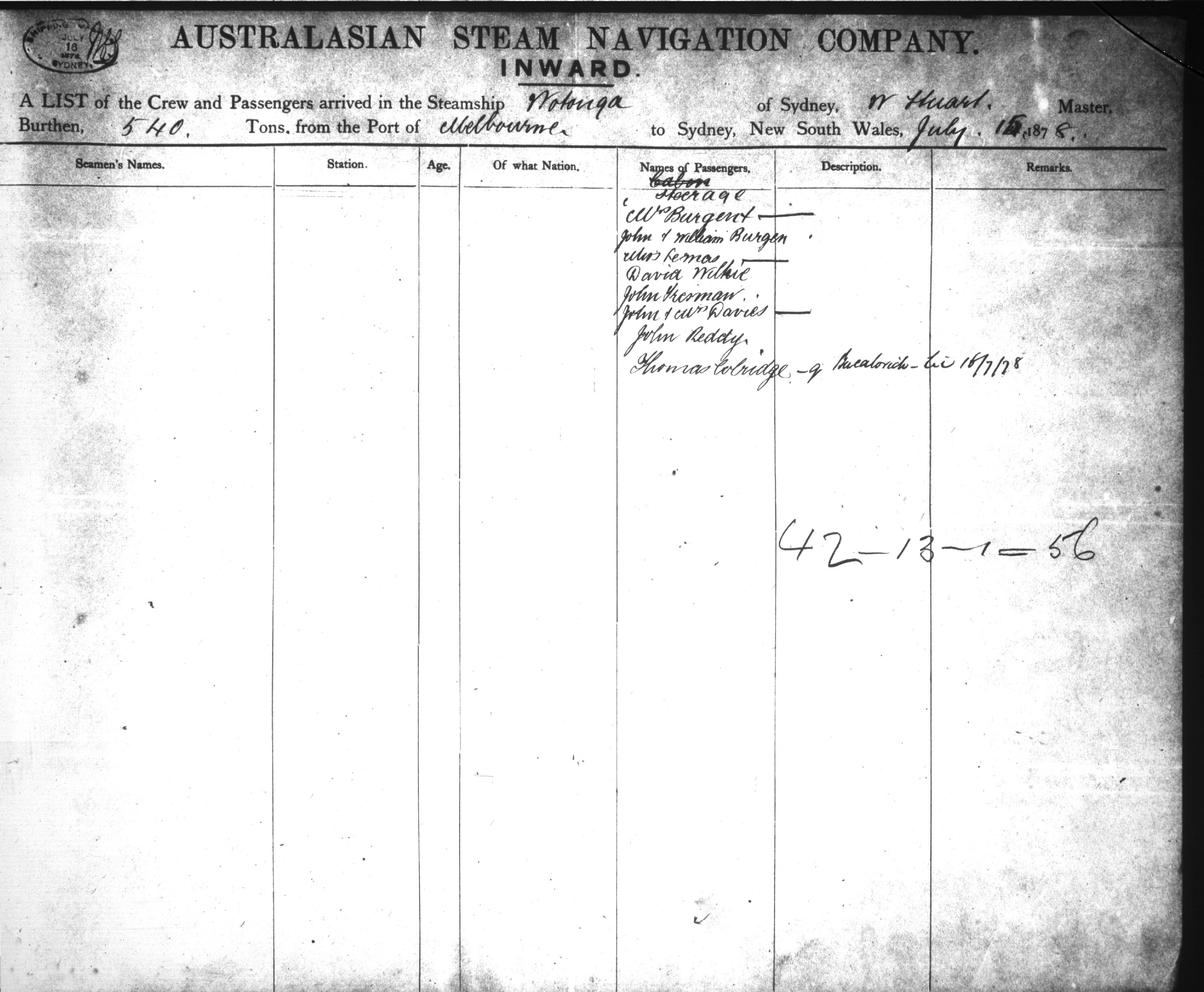 SHIPPING
JULY
16
1878
SYDNEY
AUSTRALASIAN STEAM NAVIGATION COMPANY.
INWARD.
A LIST of the Crew and Passengers arrived in the Steamship Wotonga of Sydney, W Stuart. Master,
Burthen, 540. Tons, from the Port of Melbourne to Sydney, New South Wales, July. 1878.
Seamen's Names. Station. Age. Of what Nation. Names of Passengers. Description. Remarks.
Cabin
Steerage
Mrs Burgent
John & William Burgen
David Wilkie
John
John & Mrs Davies
John Reddy.
Thomas Colridge - 16/7/78
42-13-1=56